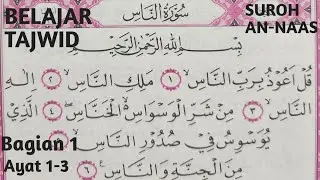 BELAJAR
TAJWID
سُوْرَةُ النَّاسِ
SUROH
AN-NAAS
بِسْمِ اللهِ الرَّحْمٰنِ الرَّحِيْمِ
قُلْ اَعُوْذُ بِرَبِّ النَّاسِۙ ١ مَلِكِ النَّاسِۙ ٢ اِلٰهِ
النَّاسِۙ ٣ مِنْ شَرِّ الْوَسْوَاسِ الْخَنَّاسِۖ ٤ الَّذِيْ
يُوَسْوِسُ فِيْ صُدُوْرِ النَّاسِۙ
مِنَ الْجِنَّةِ وَالنَّاسِ ٦
Bagian 1
Ayat 1-3